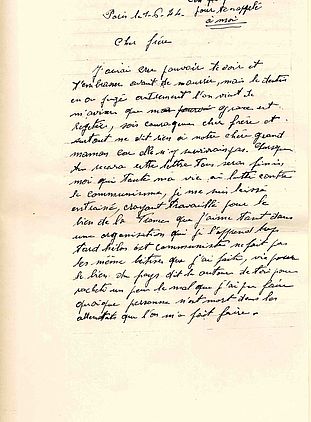 pour te rappeler
à moi
Paris le 1.6.44
Cher frère
J'aurai cru pouvoir te voir et
t'embrasser avant de mourrir, mais le destin
en a jugé autrement l'on vient de
m'aviser que ma grace est
rejetée, sois courageux cher frère et
surtout ne dit rien à notre chère grand
maman car elle n'y survivrais pas. Lorsque
tu recevra cette lettre tous sera finis,
moi qui toute ma vie ai lutté contre
le communisme, je me suis laissé
entrainé, croyant travaillé pour le
bien de la France que j'aime tant dans
une organisation qui je l'apprend trop
tard hélas est communiste ne fait pas
les même bêtises que j'ai faite, vis pour
le bien du pays dit le autour de toi pour
racheté un peu le mal que j'ai pu faire
quoique personne n'est mort dans les
attentats que l'on m'a fait faire.